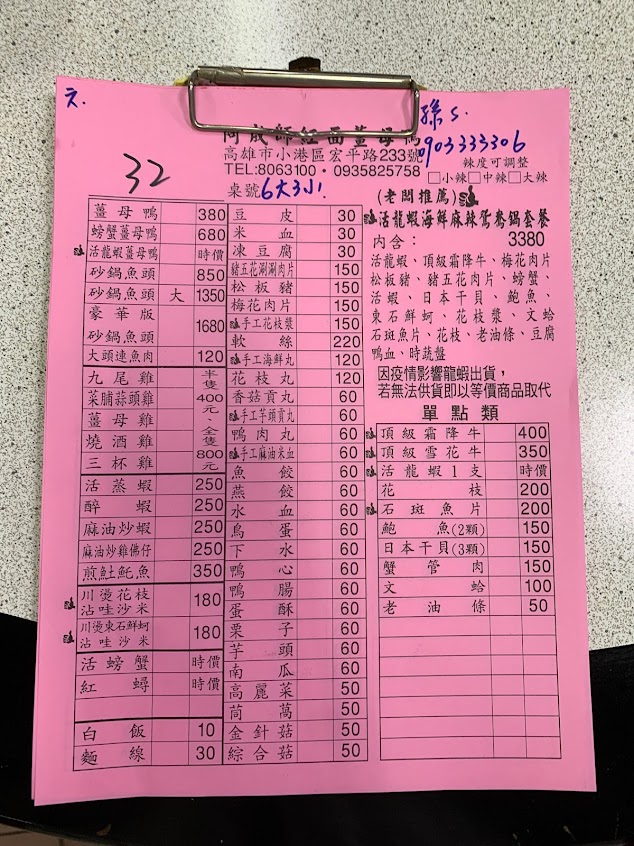 孫 S.
阿成師紅面薑母鴨
0903333306
高雄市小港區宏平路233號
TEL:8063100・0935825758
辣度可調整
□小辣□中辣□大辣
32
桌號 6大3小
薑母鴨 380
螃蟹薑母鴨 680
活龍蝦薑母鴨 時價
砂鍋魚頭 850
砂鍋魚頭 大 1350
豪華版
砂鍋魚頭 1680
大頭連魚肉 120
九尾雞
菜脯蒜頭雞
薑母雞
燒酒雞
三杯雞
半隻400元、全隻800元
活蒸蝦 250
醉蝦 250
麻油炒蝦 250
麻油炒雞佛仔 250
煎𩵚魠魚 350
川燙花枝
沾哇沙米 180
川燙東石鮮蚵
沾哇沙米 180
活螃蟹 時價
紅蟳 時價
白飯 10
麵線 30
豆皮 30
米血 30
凍豆腐 30
豬五花涮涮肉片 150
松板豬 150
梅花肉片 150
手工花枝漿 150
軟絲 220
手工海鮮丸 120
花枝丸 120
香菇貢丸 60
手工芋頭貢丸 60
鴨肉丸 60
手工麻油米血 60
魚餃 60
燕餃 60
水血 60
鳥蛋 60
下水 60
鴨心 60
鴨腸 60
蛋酥 60
栗子 60
芋頭 60
南瓜 60
高麗菜 50
茼萵 50
金針菇 50
綜合菇 50
(老闆推薦)
活龍蝦海鮮麻辣鴛鴦鍋套餐
內含： 3380
活龍蝦、頂級霜降牛、梅花肉片
松板豬、豬五花肉片、螃蟹、
活蝦、日本干貝、鮑魚、
東石鮮蚵、花枝漿、文蛤
石斑魚片、花枝、老油條、豆腐
鴨血、時蔬盤
因疫情影響龍蝦出貨，
若無法供貨即以等價商品取代
單點類
頂級霜降牛 400
頂級雪花牛 350
活龍蝦1支 時價
花枝 200
石斑魚片 200
鮑魚(2顆) 150
日本干貝(3顆) 150
蟹管肉 150
文蛤 100
老油條 50